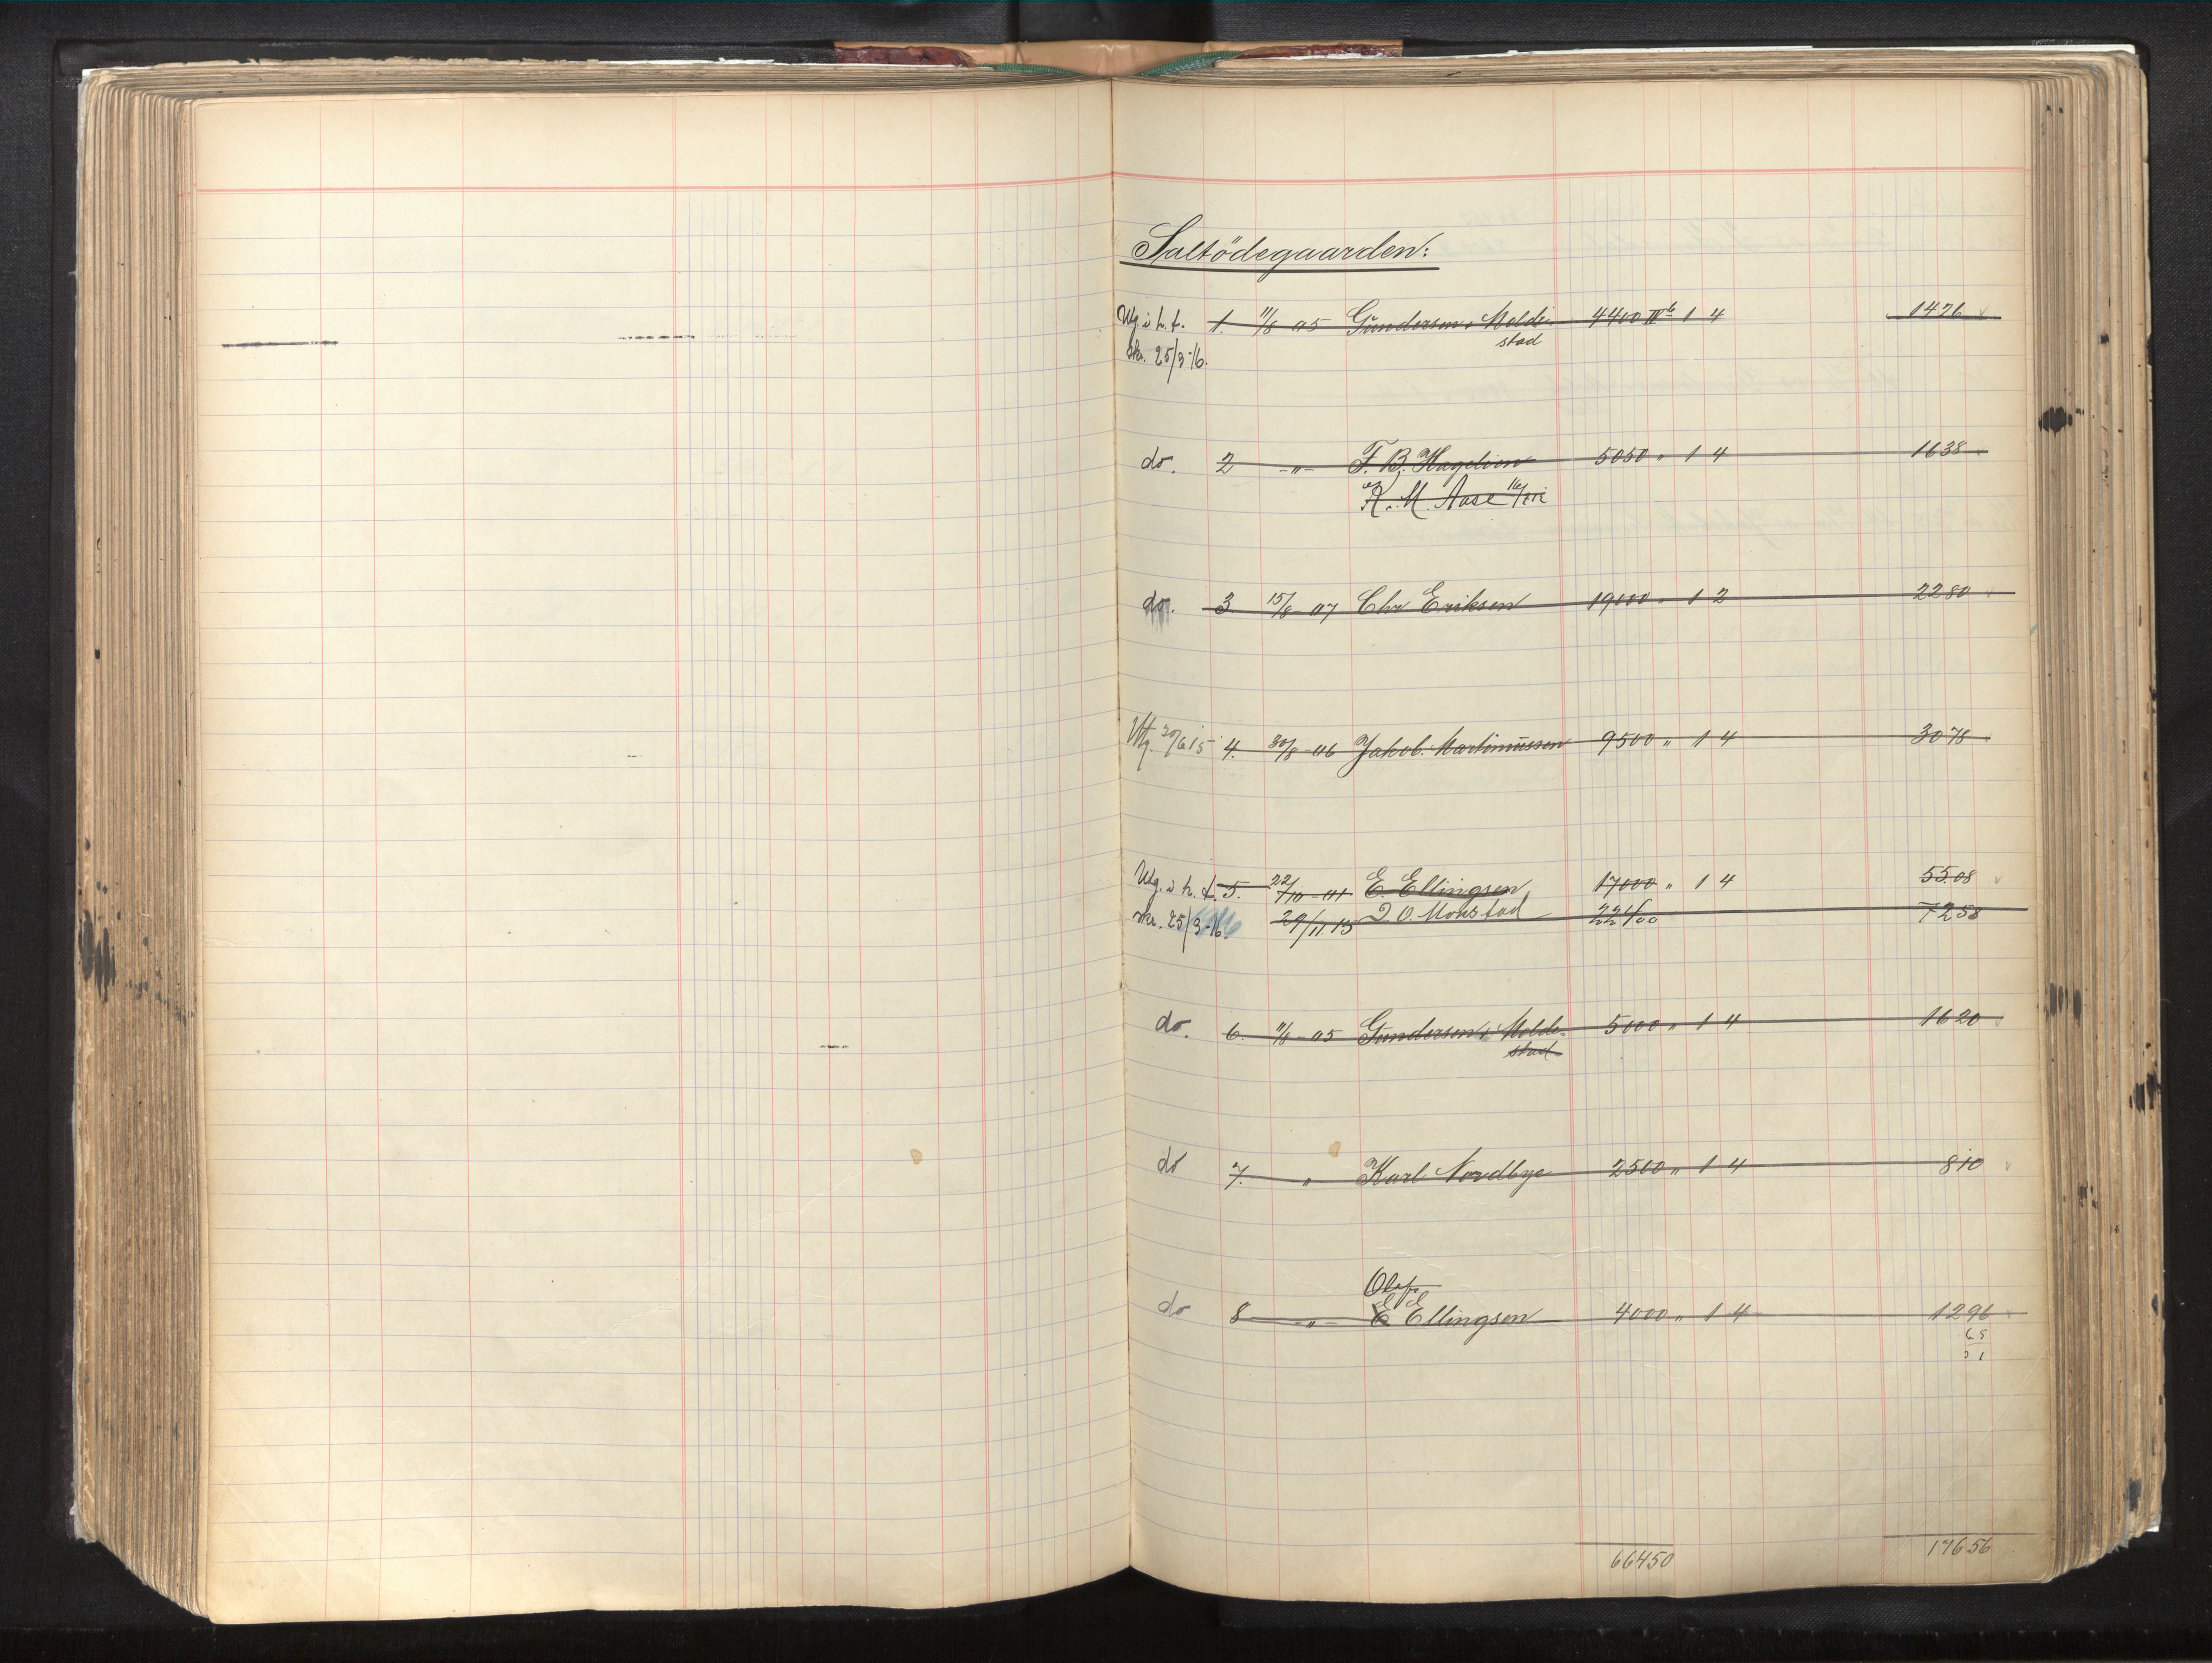 Saltödegaarden:
Utg. i h. t. 1. 11/8 05 Gundersen & Molde- 4400 IVb 1 4 1426
stad
skr. 25/3-16.
do. 2 -"- F. B. Hagelien 5050 " 1 4 1638
K. M. Aase
do. 3. 15/8-07 Chr Eriksen 19000 " 1 2 2280
Utg. 30/6 15 4. 30/8-06 Jakob Martinussen 9500 " 1 4 3078
Utg. i h. t. 5. 22/10-01 E. Ellingsen 17000 " 1 4 5508
skr. 25/3-16. 29/11.13 O. Monstad 22400 7258
do. 6. 11/8-05 Gundersen & Molde- 5000 " 1 4 1620
stad
do 7. " Karl Nordbye 2500 " 1 4 810
Olaf
do 8 -"- E Ellingsen 4000 " 1 4 1296
66450 17656